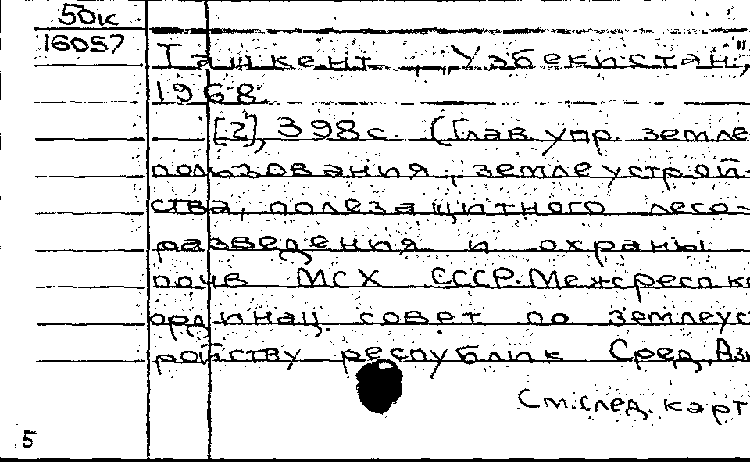 50к
16057
Ташкент, „Узбекистан",
1968.
[2], 398 с. (Глав. упр. земле
пользования, землеустрой-
ства, полезащитного лесо-
разведения и охраны
почв МСХ СССР. Межресп. к
ординац. совет по землеус
ройству республик Сред. Аз
См. след. карт
5